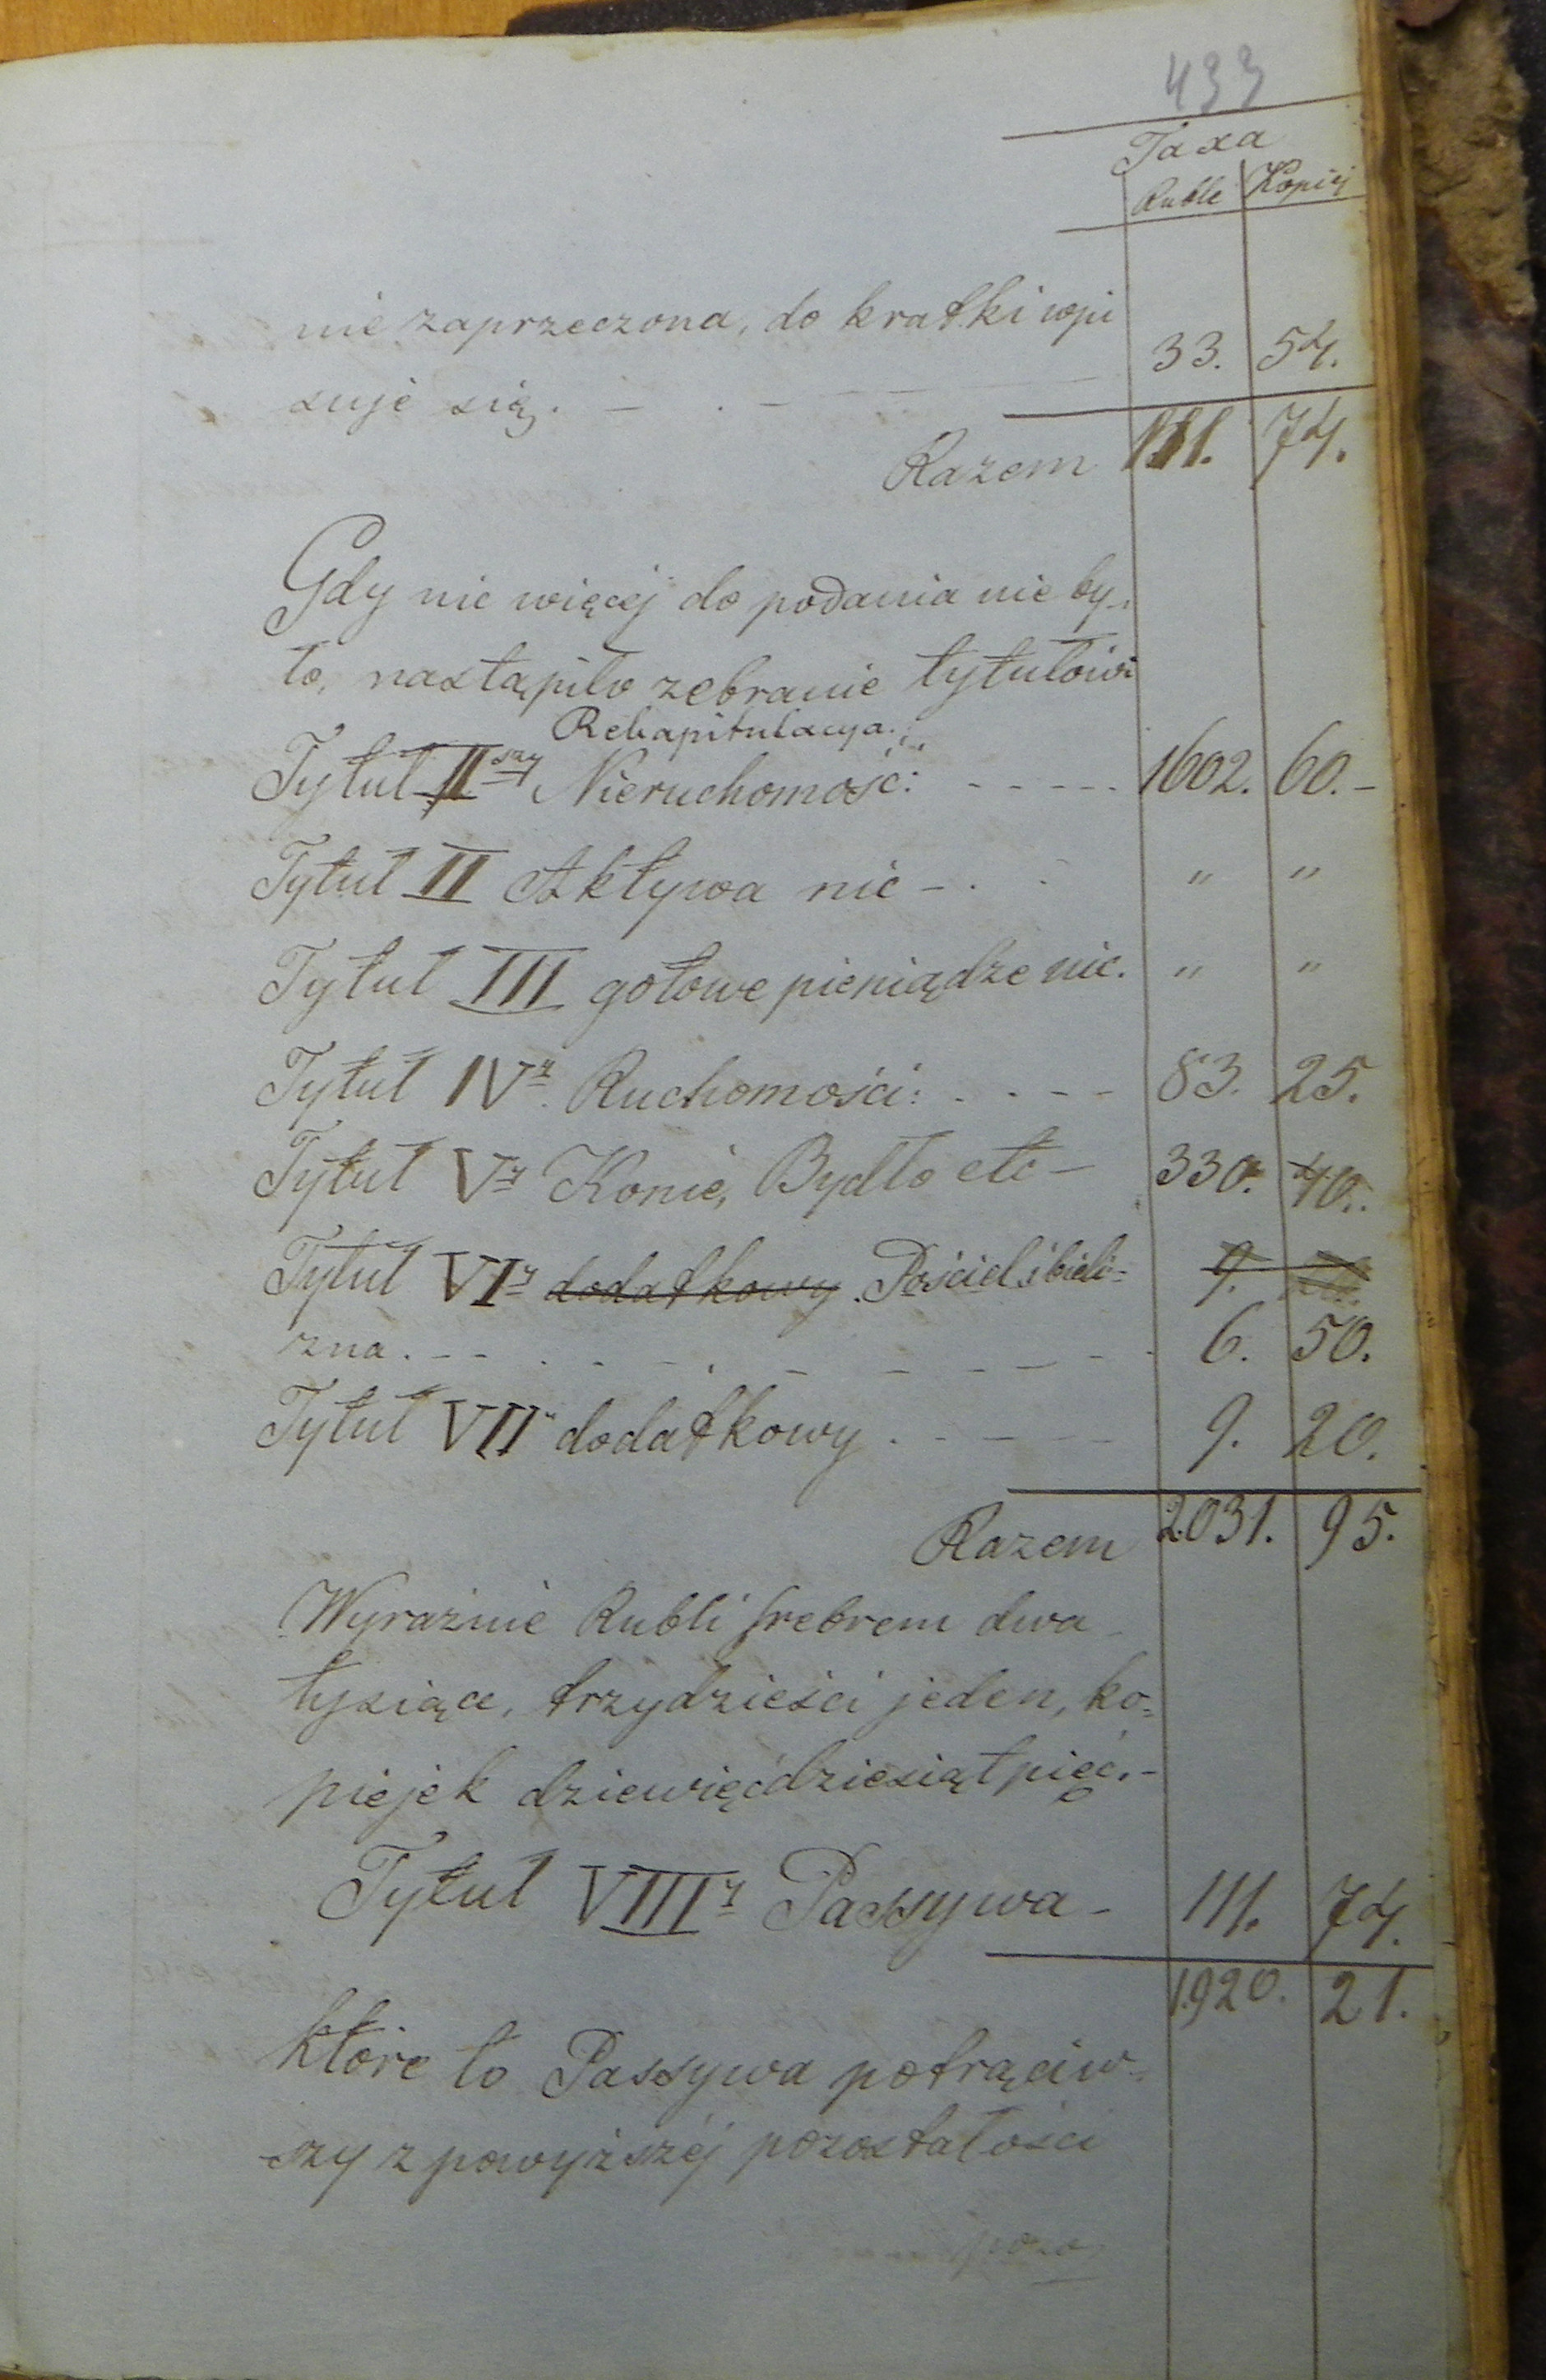 433
Taxa
Ruble Kopiej
nie zaprzeczona, do kratki wpi
suje się. - . - 33. 54.
Razem 111. 74.
Gdy nic więcéj do podania nie by-
ło, nastąpiło zebranie tytułów
Rekapitulacya.
Tytuł I szy Nieruchomość: - - - - - 1602. 60. -
Tytuł II Aktywa nic - . . " "
Tytuł III gotowe pieniądze nic. " "
Tytuł IV y Ruchomości: . . - - 83. 25.
Tytuł V y Konie, Bydło etc - 330. 40.
Tytuł VI y dodatkowy. Pościel i bieli= 9.
zna. - - . - - . - - - - 6. 50.
Tytuł VII y dodatkowy . - - - 9. 20.
Razem 2031. 95.
Wyraźnie Rubli srebrem dwa
tysiące, trzydzieści jeden, ko=
piejek dziewięćdziesiąt pięć. -
Tytuł VIII y Passywa - 111. 74.
1920. 21.
które to Passywa potrąciw-
szy z powyższéj pozostałości
pozo